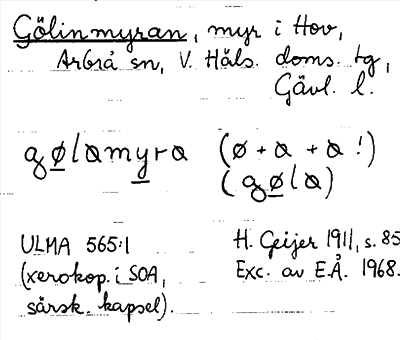 Gölinmyran, myr i Hov,
Arbrå sn, V. Häls. doms. tg,
Gävl. l.
gølamyra (ø + a + a!)
(gøla)
ULMA 565:1
(xerokop. i SOA,
särsk. kapsel).
H. Geijer 1911, s. 85
Exc. av E.Å. 1968.